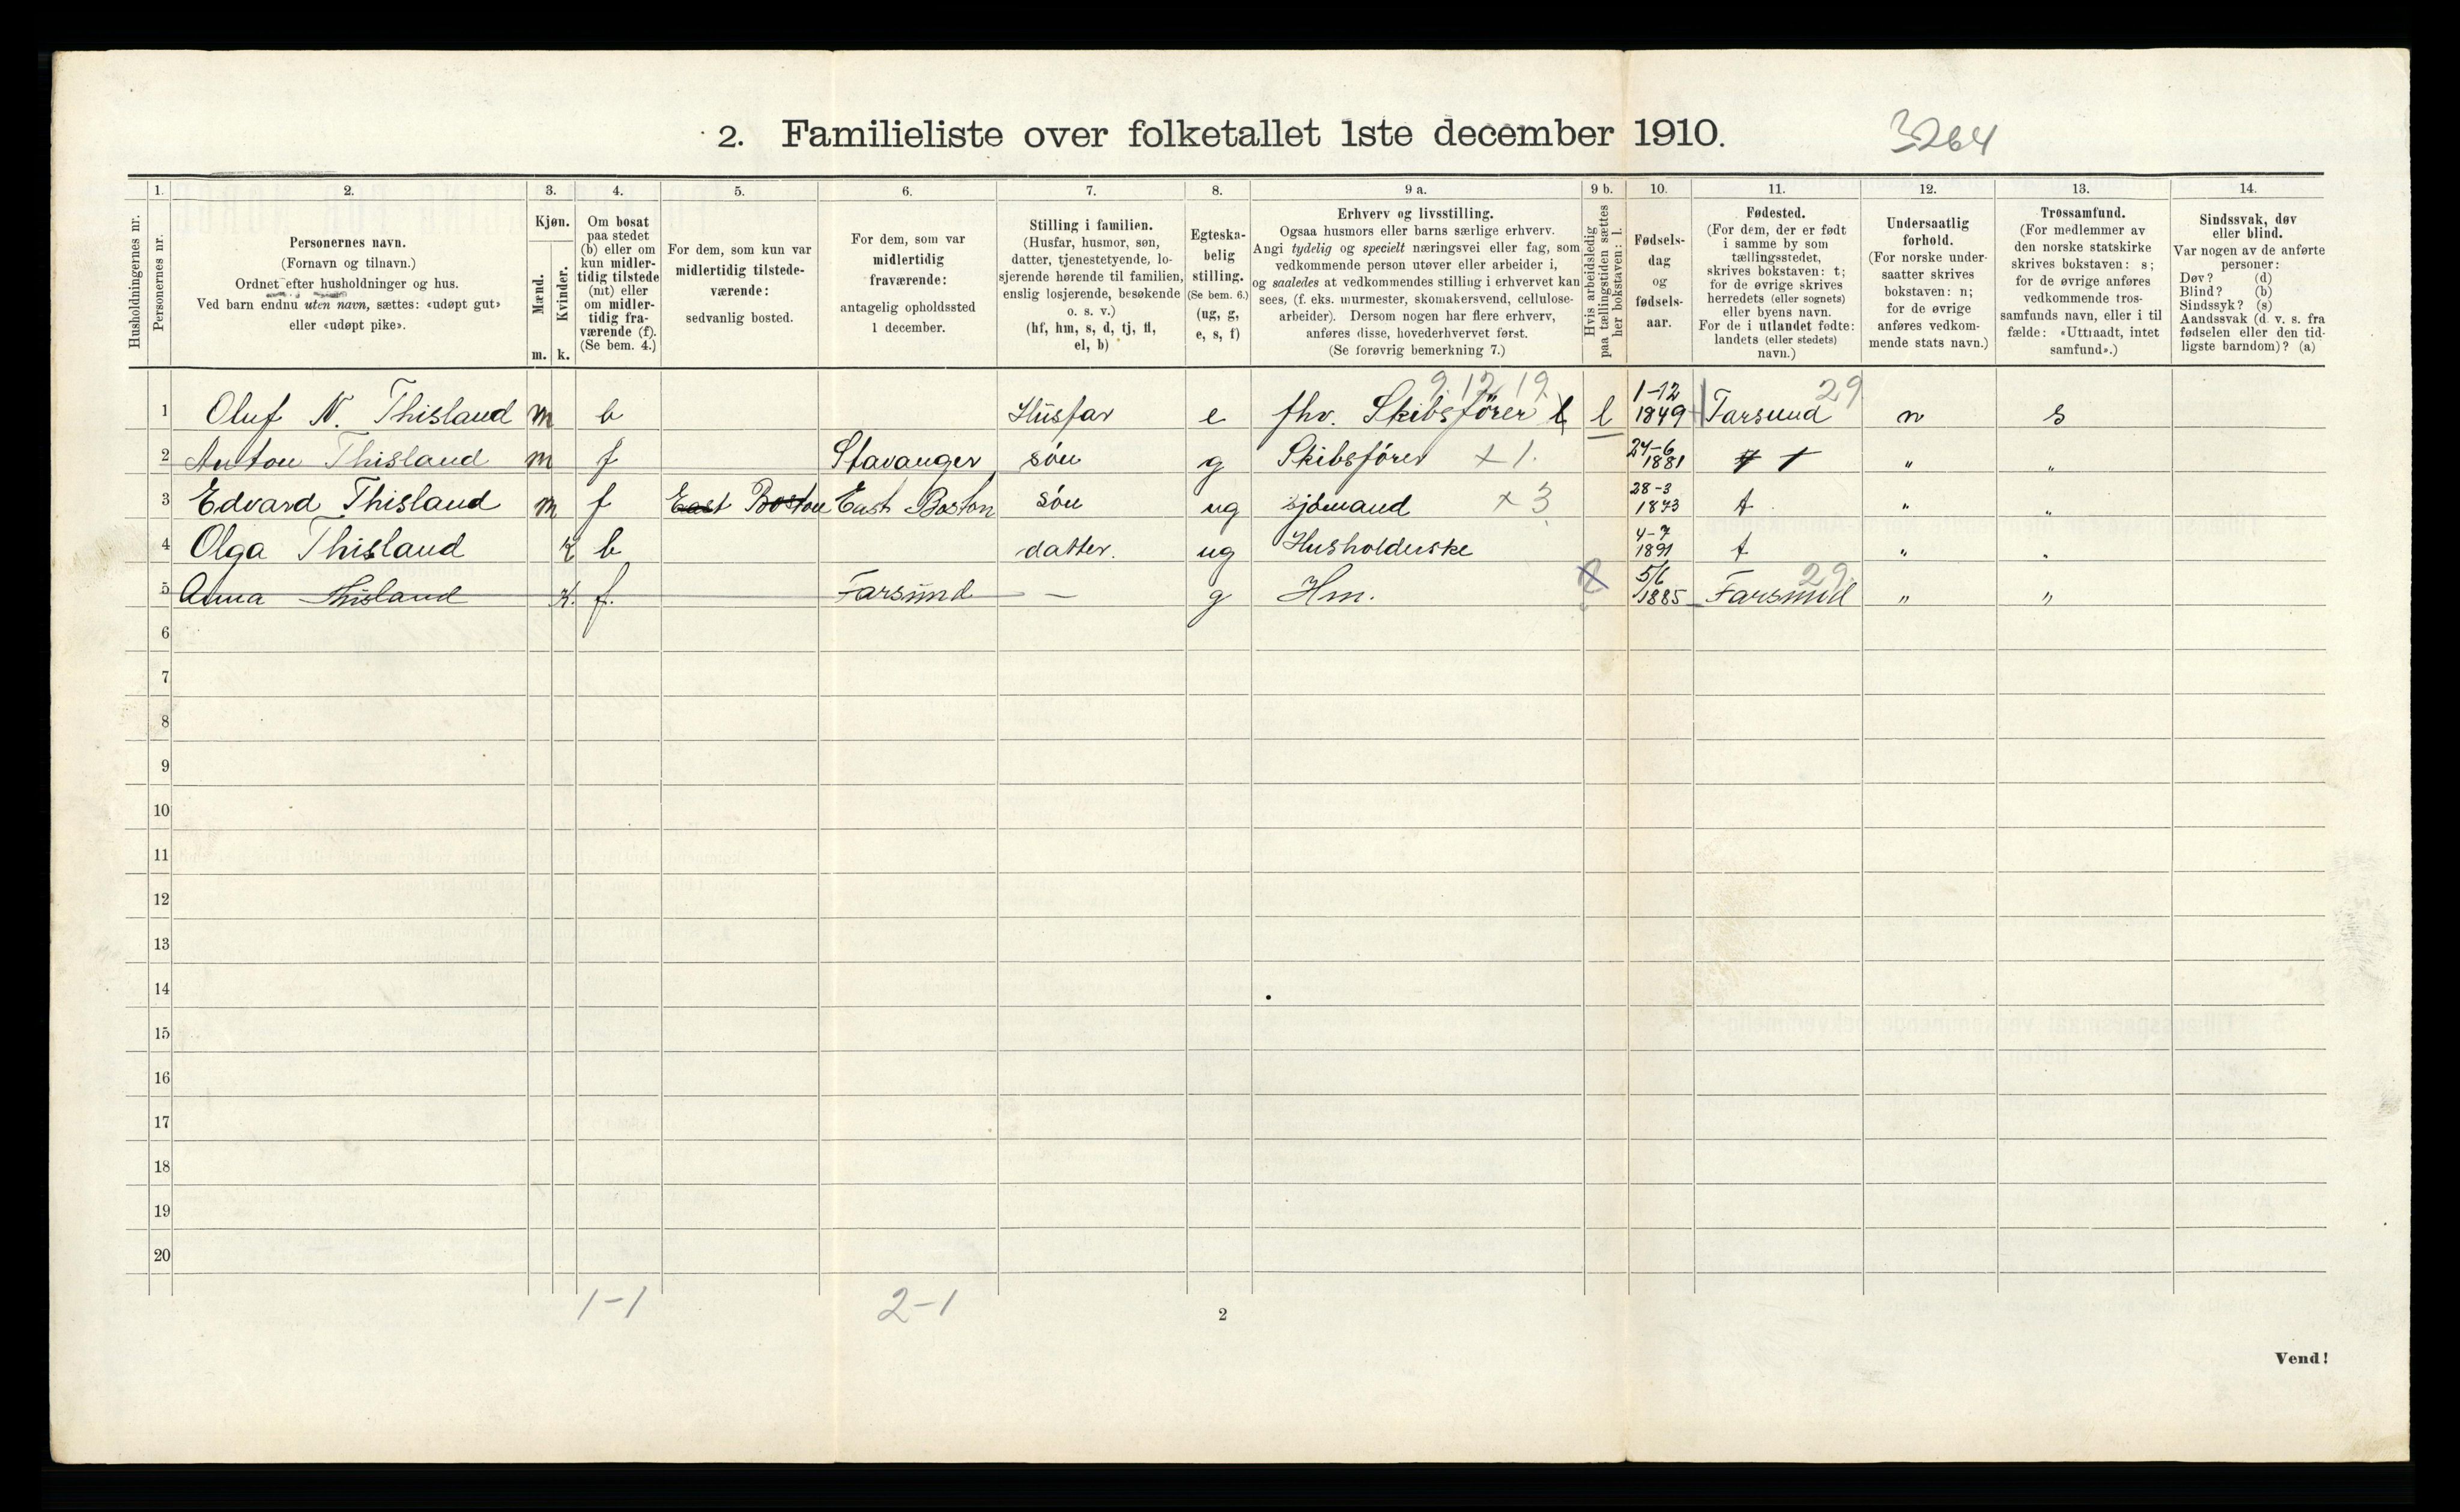 2. Familieliste over folketallet 1ste december 1910.
3264
Husholdningernes nr.
1.
Personernes nr.
2.
Personernes navn.
(Fornavn og tilnavn.)
Ordnet efter husholdninger og hus.
Ved barn endnu uten navn, sættes: «udøpt gut»
eller «udøpt pike».
3.
Kjøn.
Mænd.
Kvinder.
m. k.
4.
Om bosat
paa stedet
(b) eller om
kun midler-
tidig tilstede
(mt) eller
om midler-
tidig fra-
værende (f).
(Se bem. 4.)
5.
For dem, som kun var
midlertidig tilstede-
værende:
sedvanlig bosted.
6.
For dem, som var
midlertidig
fraværende:
antagelig opholdssted
1 december.
7.
Stilling i familien.
(Husfar, husmor, søn,
datter, tjenestetyende, lo-
sjerende hørende til familien,
enslig losjerende, besøkende
o. s. v.)
(hf, hm, s, d, tj, fl,
el, b)
8.
Egteska-
belig
stilling.
(Se bem. 6.)
(ug, g,
e, s, f)
9 a.
Erhverv og livsstilling.
Ogsaa husmors eller barns særlige erhverv.
Angi tydelig og specielt næringsvei eller fag, som
vedkommende person utøver eller arbeider i,
og saaledes at vedkommendes stilling i erhvervet kan
sees, (f. eks. murmester, skomakersvend, cellulose-
arbeider). Dersom nogen har flere erhverv,
anføres disse, hovederhvervet først.
(Se forøvrig bemerkning 7.)
9 b.
Hvis arbeidsledig
paa tællingstiden sættes
her bokstaven: l.
10.
Fødsels-
dag
og
fødsels-
aar.
11.
Fødested.
(For dem, der er født
i samme by som
tællingsstedet,
skrives bokstaven: t;
for de øvrige skrives
herredets (eller sognets)
eller byens navn.
For de i utlandet fødte:
landets (eller stedets)
navn.)
12.
Undersaatlig
forhold.
(For norske under-
saatter skrives
bokstaven: n;
for de øvrige
anføres vedkom-
mende stats navn.)
13.
Trossamfund.
(For medlemmer av
den norske statskirke
skrives bokstaven: s;
for de øvrige anføres
vedkommende tros-
samfunds navn, eller i til
fælde: «Uttraadt, intet
samfund».)
14.
Sindssvak, døv
eller blind.
Var nogen av de anførte
personer:
Døv? (d)
Blind? (b)
Sindssyk? (s)
Aandssvak (d. v. s. fra
fødselen eller den tid-
ligste barndom)? (a)
9.12.19 29
1 Oluf N. Thisland m b Husfar e fhv. Skibsfører l l 1-12 1849 Farsund n s
2 Anton Thisland m f Stavanger søn g Skibsfører x 1. 24-6 1881 t " "
3 Edvard Thisland m f East Boston East Boston søn ug sjømand x 3 28-3 1873 t " "
4 Olga Thisland K b datter. ug Husholderske 4-7 1891 t " "
5 Anna Thisland K. f. Farsund — g Hm. 5/6 1885 Farsund 29 " "
6
7
8
9
10
11
12
13
14
15
16
17
18
19
20
1-1 2-1
2
Vend!